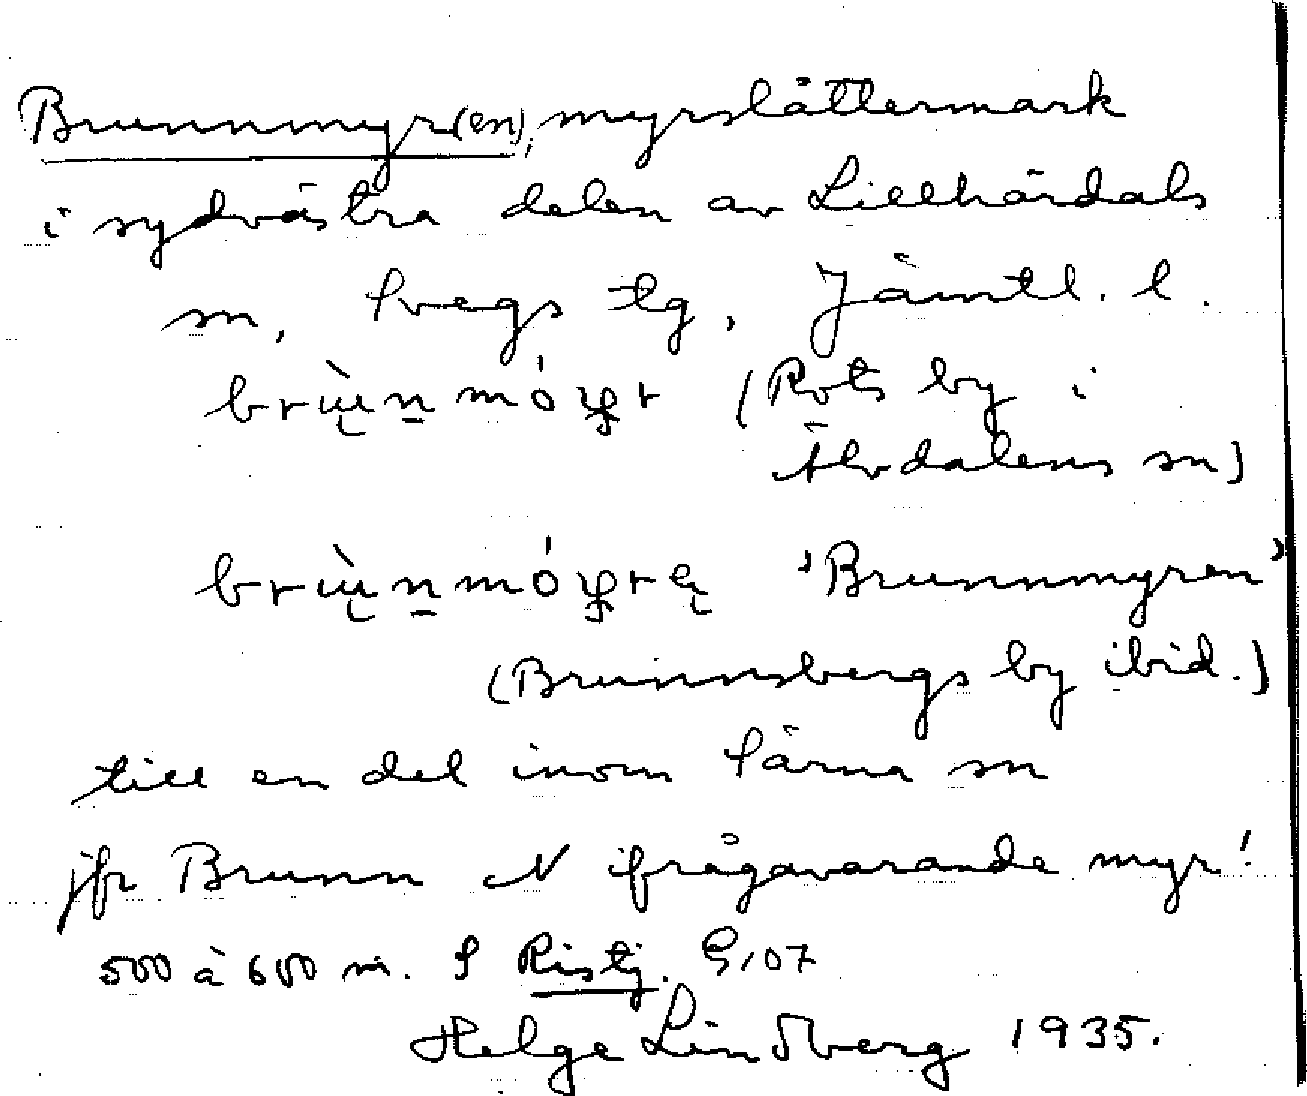 Brunnmyr(en), myrslåttermark
i sydvästra delen av Lillhärdals
sn, Svegs tg, Jämtl. l.
(Rots by i
Älvdalens sn)
'Brunnmyren'
(Brunnsbergs by ibid.)
till en del inom Särna sn
jfr Brunn N ifrågavarande myr!
500 à 600 m. S Ristj. G, 07
Helge Lindberg 1935.